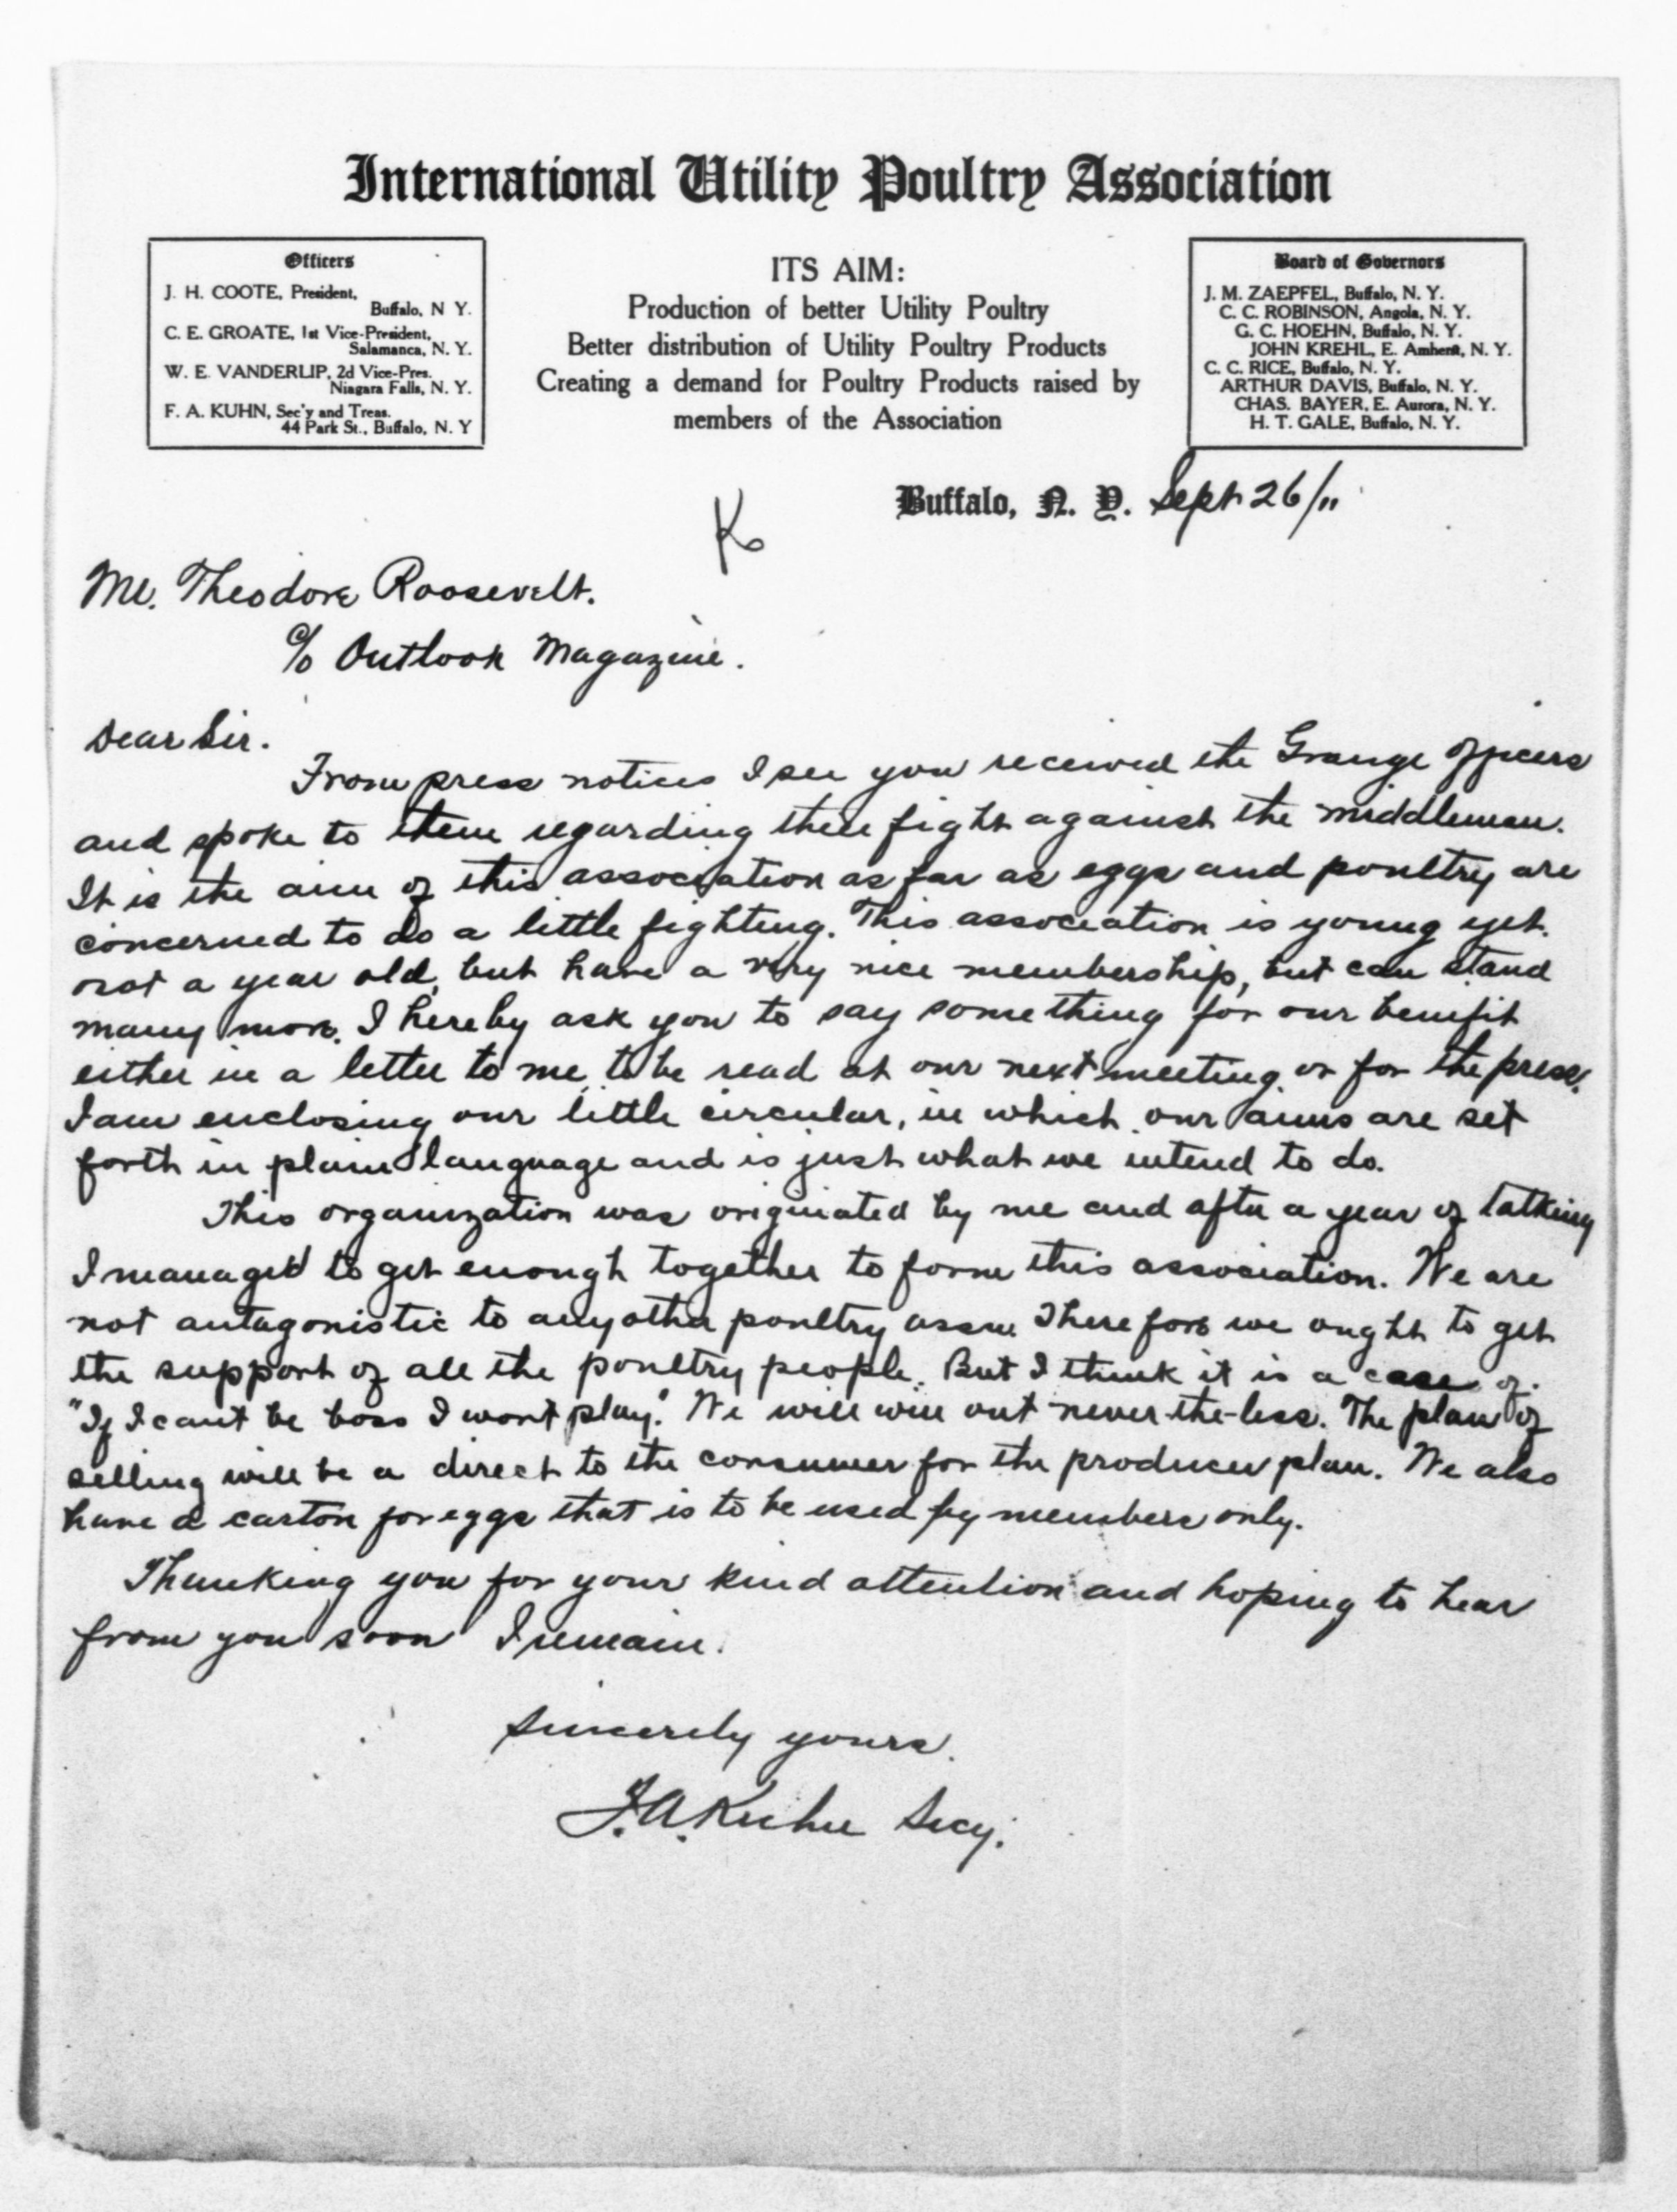 International Utility Poultry Association
Officers
J. H. COOTE, President,
Buffalo, N Y.
C. E. GROATE, 1st Vice-President,
Salamanca, N. Y.
W. E. VANDERLIP, 2d Vice-Pres.
Niagara Falls, N. Y.
F. A. KUHN, Sec'y and Treas.
44 Park St., Buffalo, N. Y
ITS AIM:
Production of better Utility Poultry
Better distribution of Utility Poultry Products
Creating a demand for Poultry Products raised by
members of the Association
Board of Governors
J. M. ZAEPFEL, Buffalo, N. Y.
C. C. ROBINSON, Angola, N. Y.
G. C. HOEHN, Buffalo, N. Y.
JOHN KREHL, E. Amherst, N. Y.
C. C. RICE, Buffalo, N. Y.
ARTHUR DAVIS, Buffalo, N. Y.
CHAS. BAYER, E. Aurora, N. Y.
H. T. GALE, Buffalo, N. Y.
Buffalo, N. Y. Sept 26/11
K
Mr. Theodore Roosevelt.
c/o Outlook Magazine.
Dear Sir.
From press notices I see you received the Grange Officers
and spoke to them regarding their fight against the middleman.
It is the aim of this association as far as eggs and poultry are
concerned to do a little fighting. This association is young yet.
not a year old, but have a very nice membership, but can stand
many more. I hereby ask you to say something for our benifit
either in a letter to me to be read at our next meeting or for the press.
I am enclosing our little circular, in which our aims are set
forth in plain language and is just what we intend to do.
This organization was originated by me and after a year of talking
I managed to get enough together to form this association. We are
not antagonistic to any other poultry assn. Therefore we ought to get
the support of all the poultry people. But I think it is a case of.
"If I cant be boss I wont play." We will win out never-the-less. The plan of
selling will be a direct to the consumer for the producer plan. We also
have a carton for eggs that is to be used by members only.
Thanking you for your kind attention and hoping to hear
from you soon I remain.
Sincerely yours.
F. A. Kuhn Secy.